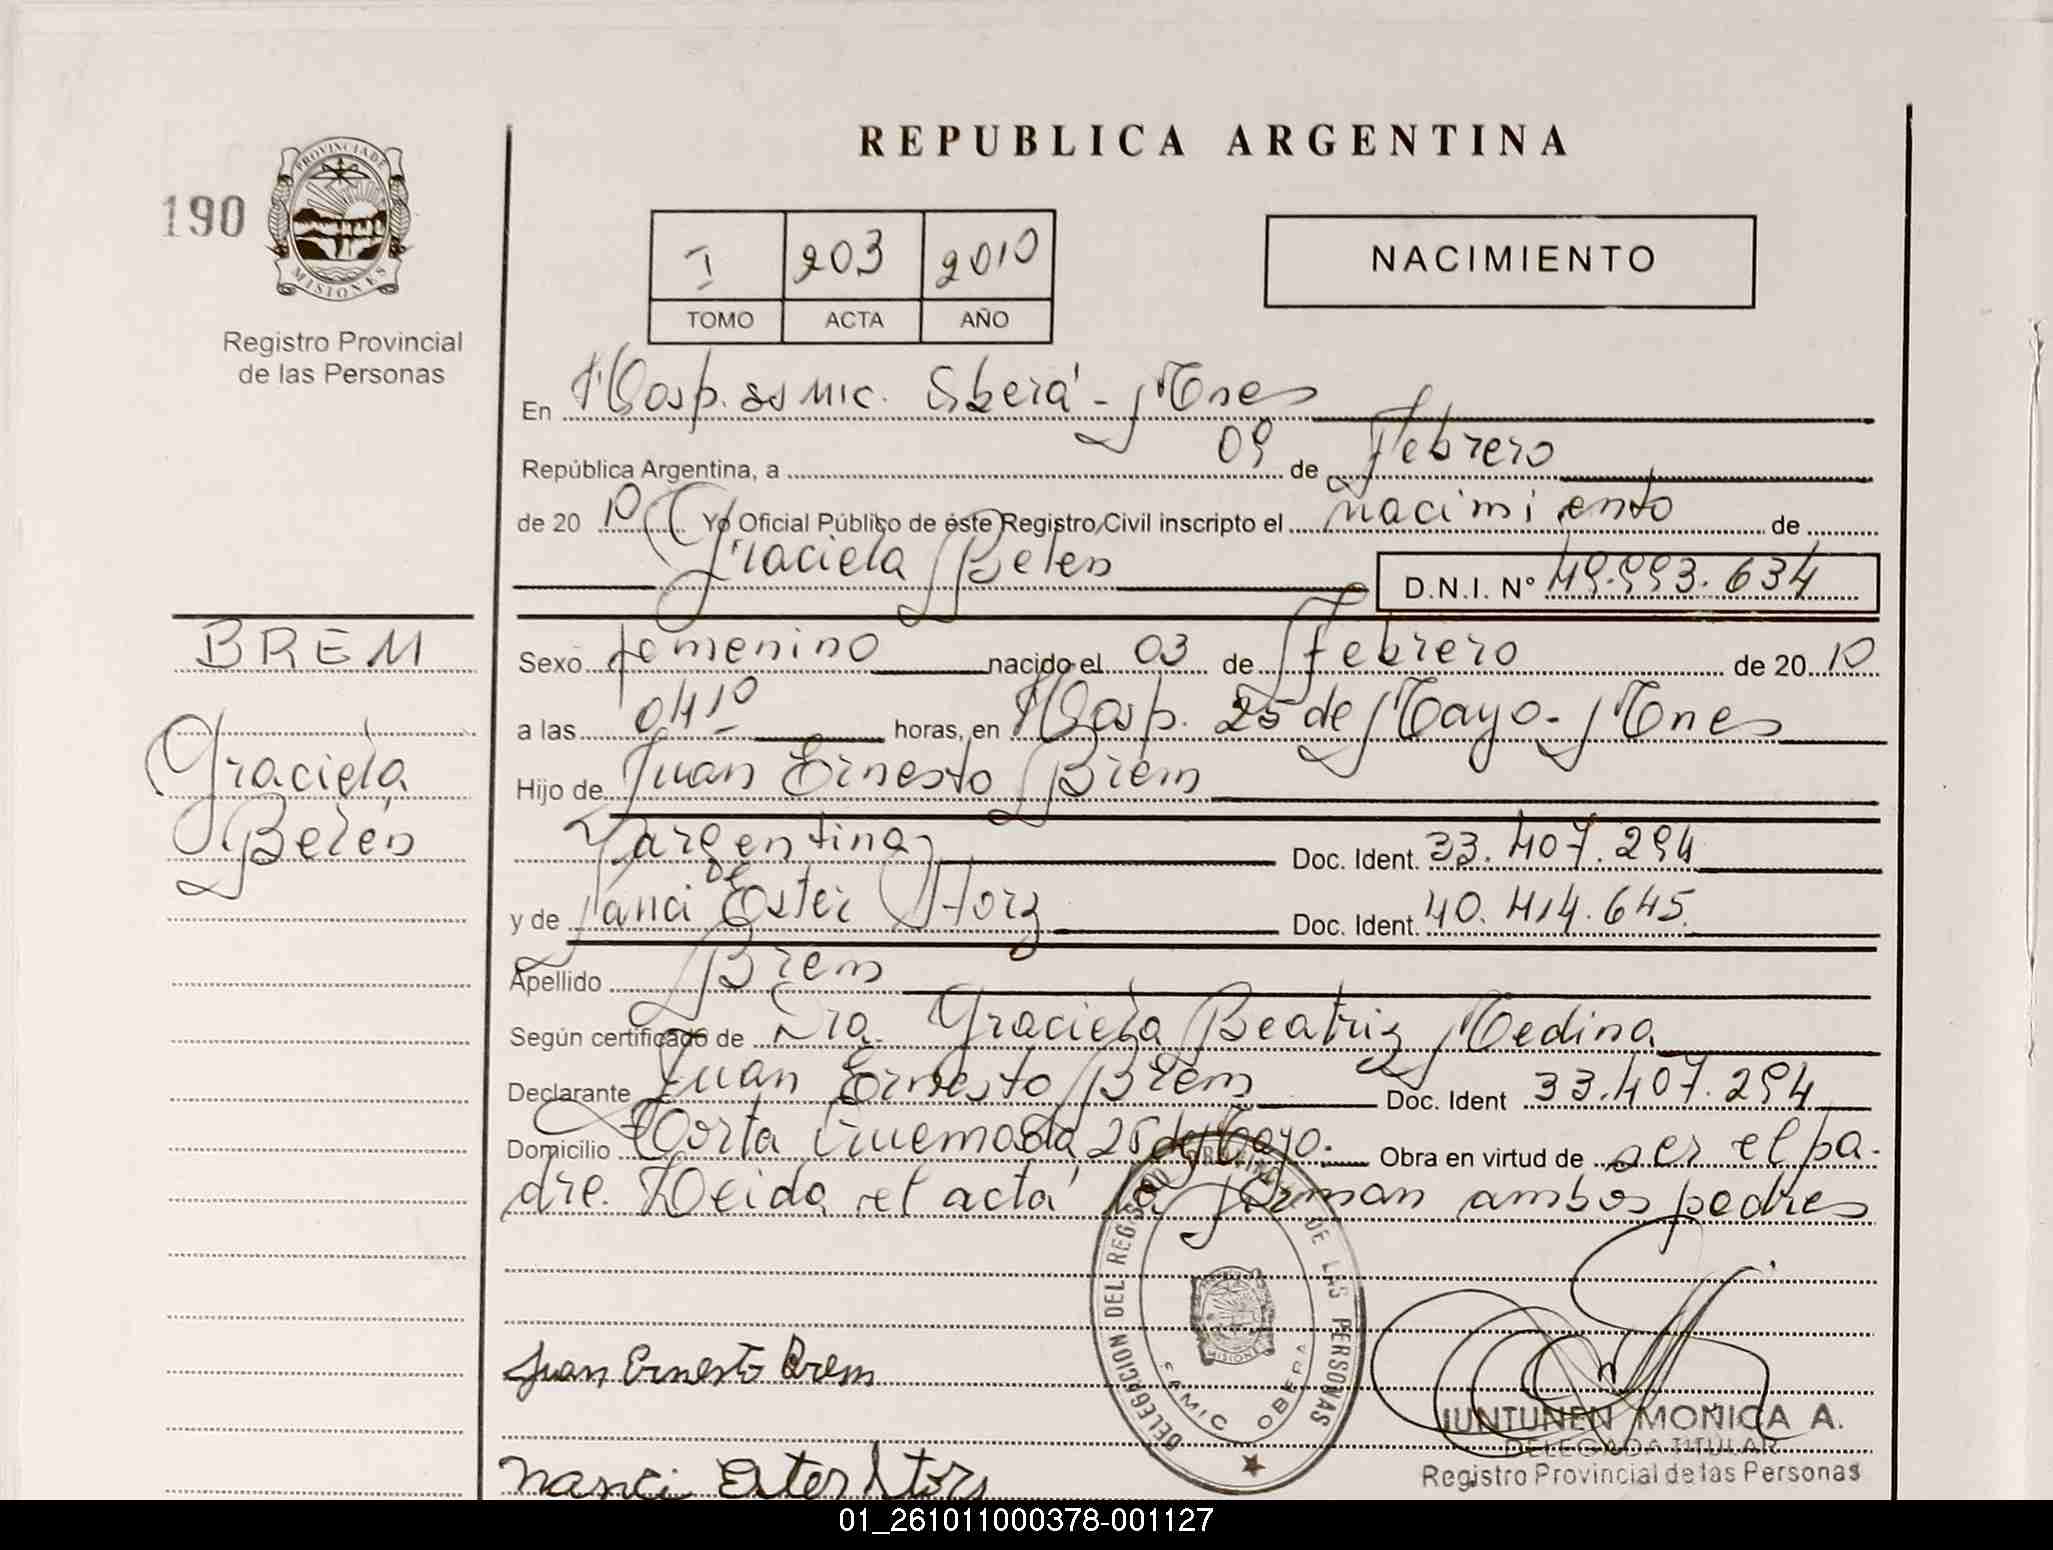 REPUBLICA ARGENTINA
190
PROVINCIA DE
MISIONES
Registro Provincial
de las Personas
I 203 2010
TOMO ACTA AÑO
NACIMIENTO
En Hosp. Samic. Oberá - Mnes
República Argentina, a 09 de Febrero
de 20 10 Yo Oficial Público de éste Registro Civil inscripto el nacimiento de
Graciela Belen D.N.I. Nº 49.993.634
BREM
Graciela
Belén
Sexo femenino nacido el 03 de Febrero de 20 10
a las 04 10 horas, en Hosp. 25 de Mayo - Mnes
Hijo de Juan Ernesto Brem
argentina Doc. Ident. 33.407.294
y de Nanci Ester Storz Doc. Ident. 40.414.645
Apellido Brem
Según certificado de Dra. Graciela Beatriz Medina
Declarante Juan Ernesto Brem Doc. Ident 33.407.294
Domicilio 25 de Mayo. Obra en virtud de ser el pa-
dre. Leida el acta la firman ambos padres
DELEGACION DEL REGISTRO PROVINCIAL DE LAS PERSONAS
MISIONES
SAMIC OBERA
Juan Ernesto Brem
Nanci Ester Storz
JUNTUNEN MONICA A.
DELEGADA TITULAR
Registro Provincial de las Personas
01_261011000378-001127